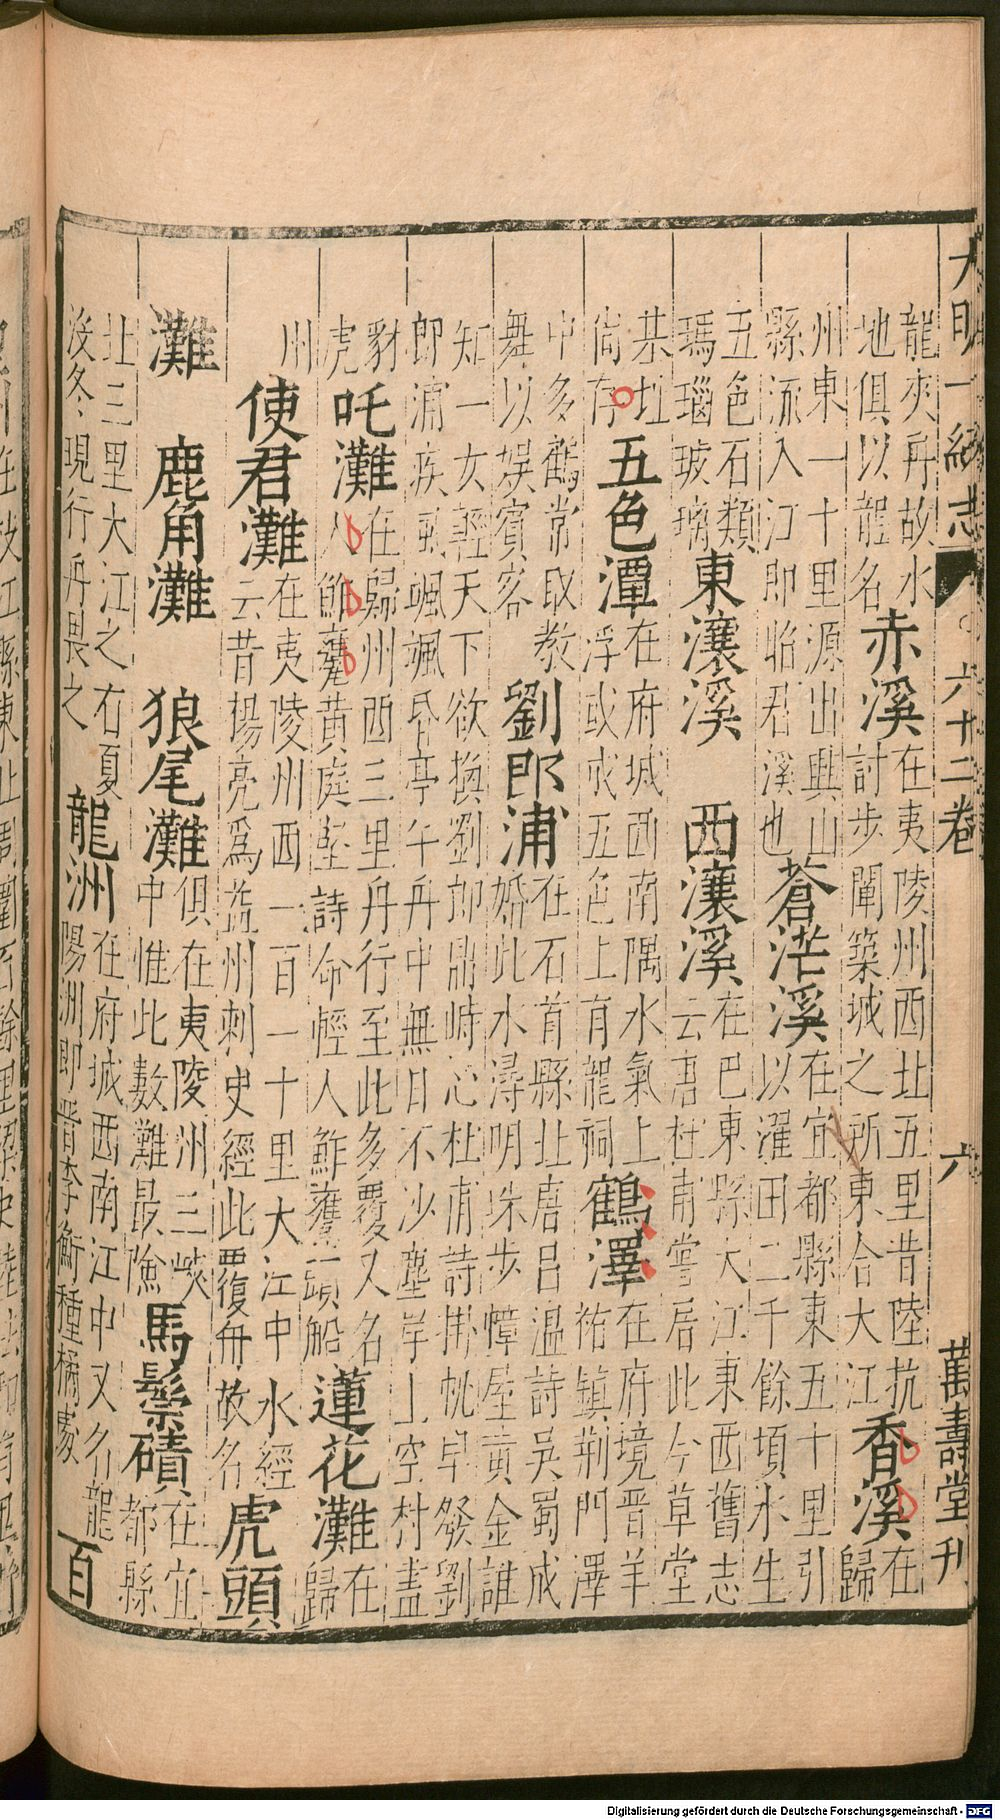 大明一統志 六十二卷 六 萬壽堂刊
龍夾舟故水地俱以龍名 赤溪 在夷陵州西北五里昔陸抗討步闡築城之所東合大江 香溪 在歸
州東一十里源出興山縣流入江即昭君溪也 蒼茫溪 在宜都縣東五十里引以濯田二千餘頃水生
五色石類瑪瑙玻璃 東瀼溪 西瀼溪 在巴東縣大江東西舊志云唐杜甫嘗居此今草堂
基址尚存 五色潭 在府城西南隅水氣上浮或成五色上有龍祠 鶴澤 在府境晉羊祐鎮荆門澤
中多鶴常取教舞以娱賓客 劉郎浦 在石首縣北唐呂温詩吳蜀成婚此水潯明珠步幛屋黄金誰
知一女輕天下欲換劉郎鼎峙心杜甫詩掛帆早發劉郎浦疾風颯颯昏亭午舟中無日不沙塵岸上空村盡
豺虎 吒灘 在歸州西三里舟行至此多覆又名人鮓甕黄庭堅詩命輕人鮓甕頭船 蓮花灘 在歸
州 使君灘 在夷陵州西一百一十里大江中水經云昔楊亮為益州刺史經此覆舟故名 虎頭
灘 鹿角灘 狼尾灘 俱在夷陵州三峽中惟此數難最險 馬鬃磧 在宜都縣
北三里大江之右夏没冬現行舟畏之 龍洲 在府城西南江中又名龍陽洲即晉李衡種橘處 百
Digitalisierung gefördert durch die Deutsche Forschungsgemeinschaft - DFG